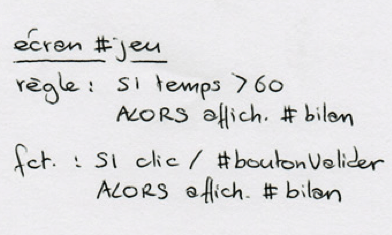 écran #jeu
règle : SI temps > 60
ALORS affich. # bilan
fct. : SI clic / #boutonValider
ALORS affich. # bilan